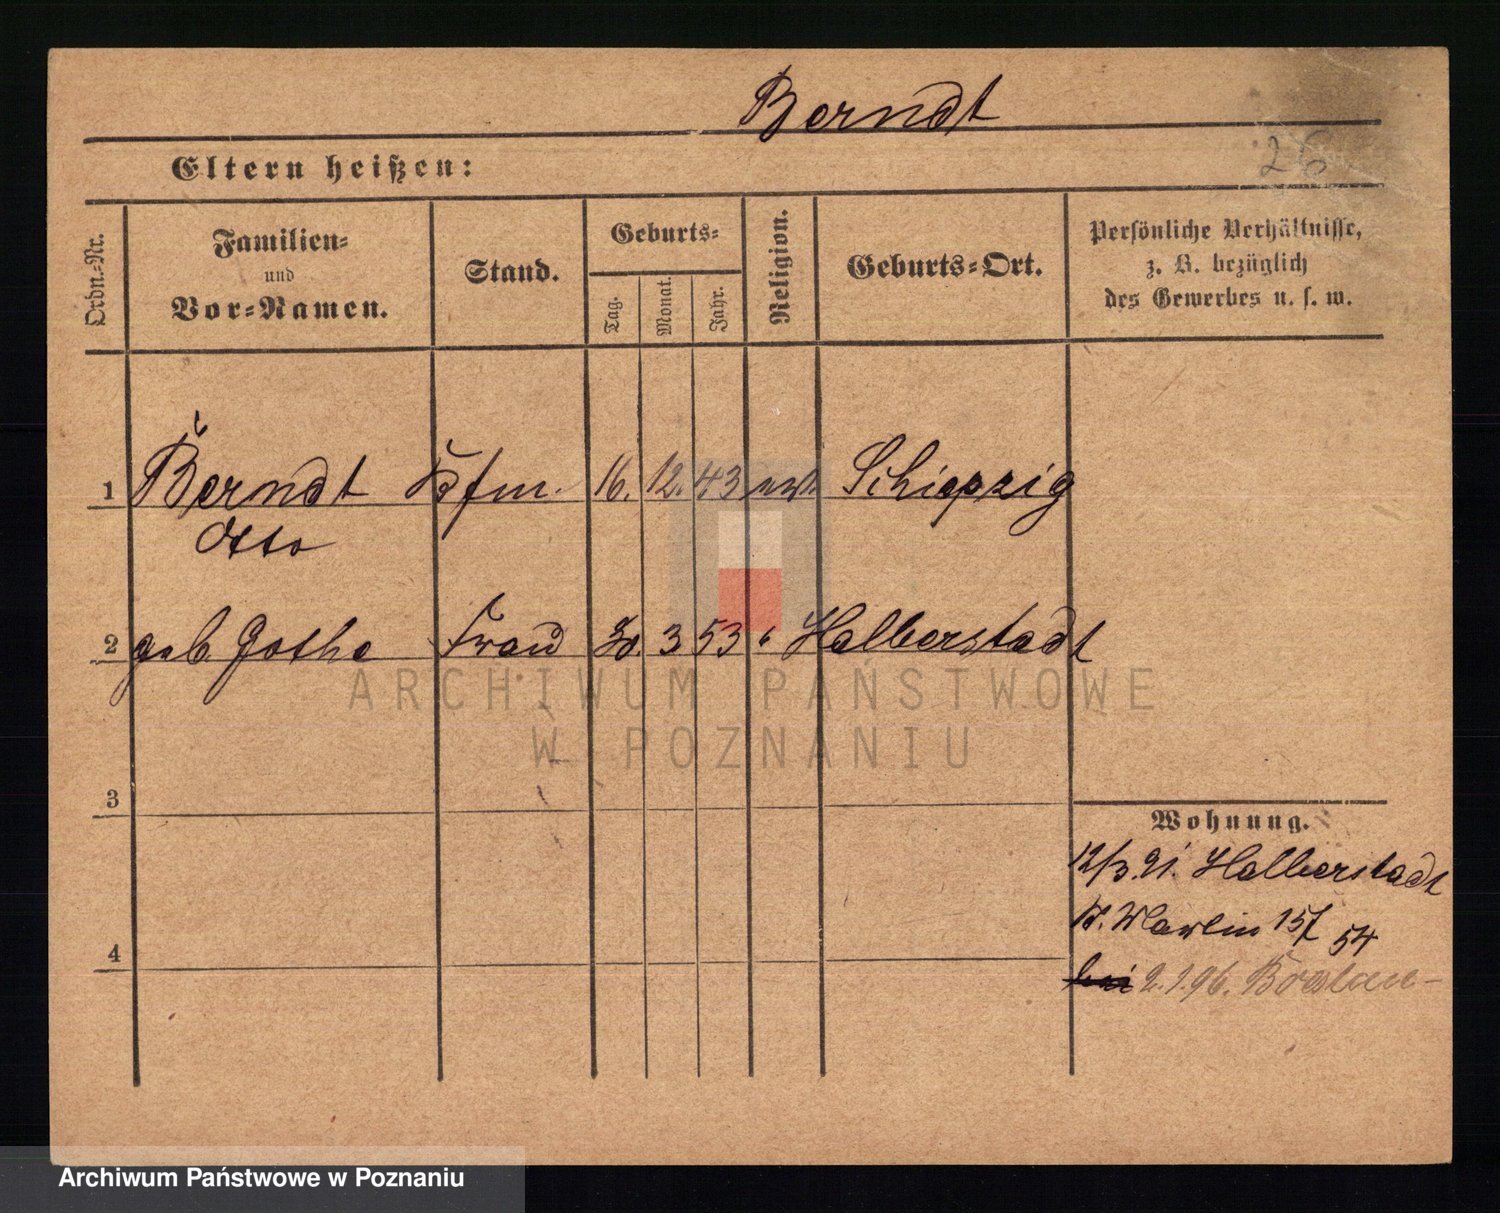 Berndt
26
Eltern heißen:
Ordn.-Nr.
Familien-
und
Vor-Namen.
Stand.
Geburts-
Tag.
Monat.
Jahr.
Religion.
Geburts-Ort.
Persönliche Verhältnisse,
z. B. bezüglich
des Gewerbes u. s. w.
1 Berndt Kfm. 16. 12. 43 ev. Schiepzig
Otto
2 geb. Gothe Frau 30. 3 53 " Halberstadt
ARCHIWUM PAŃSTWOWE
W POZNANIU
3
Wohnung.
12/3. 91. Halberstadt
157
54
4
2.1.96. Breslau
Archiwum Państwowe w Poznaniu